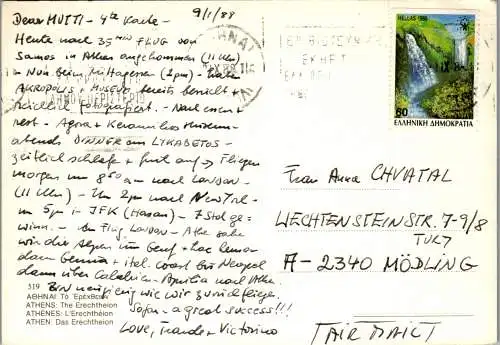 Dear MUTTI - 4te Karte - 9/1/88
Heute nach 35 min FLUG von
Samos in Athen angekommen (11 Uhr)
- Nun beim Mittagessen (2pm) - habe
AKROPOLIS + MUSEUM bereits besucht +
fotografiert - Nach essen +
rest - Agora + Kerameikos Museum -
abends DINNER am LYKABETOS -
zeitlich schlafen + früh auf → Fliegen
morgen um 8:50 am nach London -
(11 Uhr) - Um 2pm nach New York -
um 5pm in JFK (Hasan) - 7 Std ge-
winn. - Am Flug London - Athen sahen
wir die Alpen um Genf + Lac Leman
dann Genua + ital. coast bis Neapel
dann über Calabrien - Apulia nach Athen.
BIN neugierig wie wir zurückfliegen.
Sofar - a great success!!!
Love, Traude + Victorino
519
ΑΘΗΝΑΙ: Τὸ Ἐρέχθειον
ATHENS: The Erechtheion
ATHÈNES: L'Erechthéion
ATHEN: Das Erechtheion
HELLAS 1988
60
ΕΛΛΗΝΙΚΗ ΔΗΜΟΚΡΑΤΙΑ
Frau Anna CHVATAL
LIECHTENSTEINSTR. 7-9/8
A-2340 MÖDLING
AIR MAIL